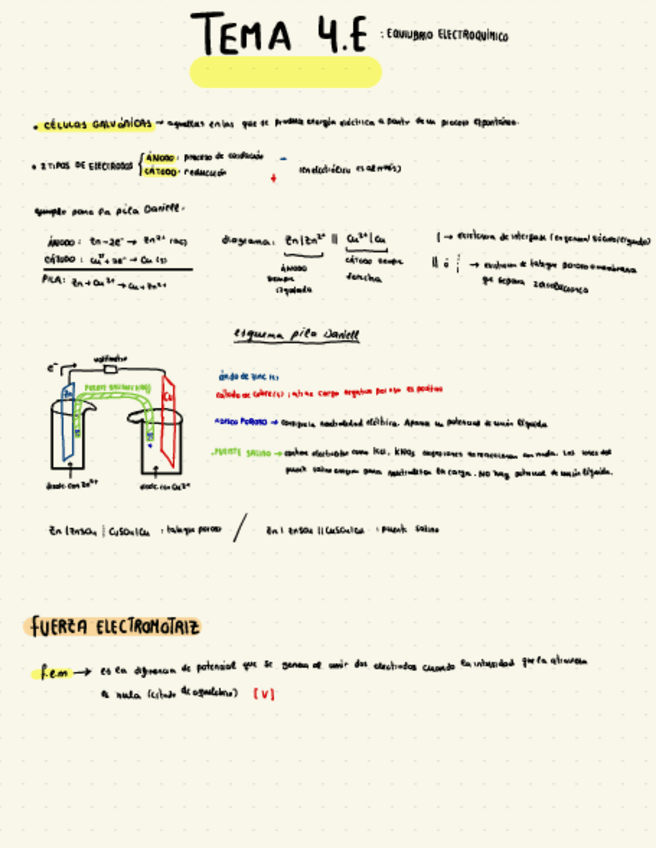 TEMA 4.E : EQUILIBRIO ELECTROQUÍMICO
• CÉLULAS GALVÁNICAS → aquellas en las que se produce energía eléctrica a partir de un proceso espontáneo.
• 2 TIPOS DE ELECTRODOS { ÁNODO: proceso de oxidación −
CÁTODO: reducción + (en electrólisis es al revés)
ejemplo para la pila Daniell:
ÁNODO: Zn - 2e⁻ → Zn²⁺ (ac)
CÁTODO: Cu²⁺ + 2e⁻ → Cu (s)
PILA: Zn + Cu²⁺ → Cu + Zn²⁺
diagrama: Zn | Zn²⁺ || Cu²⁺ | Cu
ÁNODO siempre izquierda
CÁTODO siempre derecha
| → existencia de interfase (en general sólido/líquido)
|| ó ⋮ → existencia de tabique poroso o membrana
que separa
esquema pila Daniell
e⁻ voltímetro
Zn PUENTE SALINO Cu
disolc. con Zn²⁺ disolc. con Cu²⁺
ánodo de zinc (s)
cátodo de cobre (s): atrae carga negativa por eso es positivo
TABIQUE POROSO → consigue neutralidad eléctrica. Aparece un potencial de unión líquida.
PUENTE SALINO → contiene electrolitos como KCl, KNO₃ no reaccionan con nada. Los iones del
puente salino migran para neutralizar la carga. NO hay potencial de unión líquida.
Zn | ZnSO₄ ⋮ CuSO₄ | Cu : tabique poroso / Zn | ZnSO₄ || CuSO₄ | Cu : puente salino
FUERZA ELECTROMOTRIZ
f.e.m → es la diferencia de potencial que se genera al unir dos electrodos cuando la intensidad que la atraviesa
es nula (estado de equilibrio) [V]